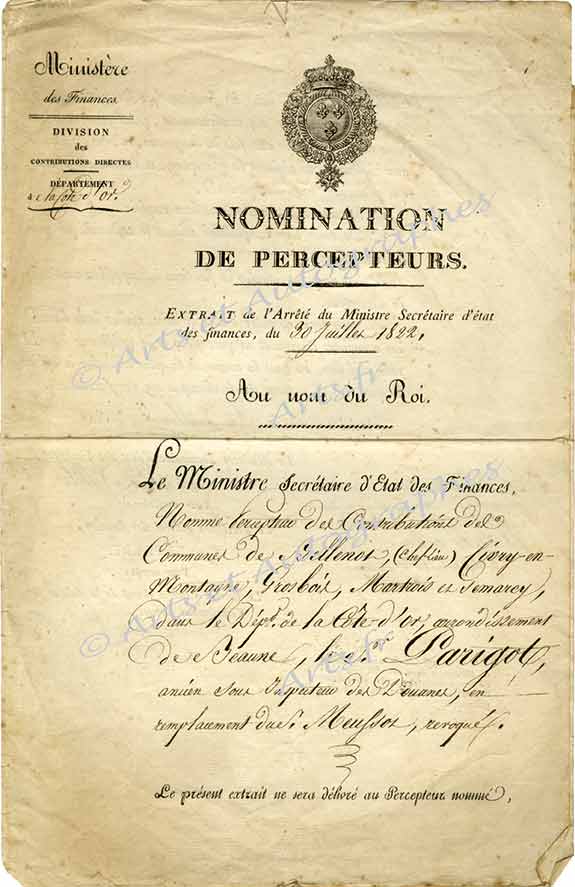 Ministère
des Finances.
DIVISION
des
CONTRIBUTIONS DIRECTES
DÉPARTEMENT
de la Côte d'Or.
NOMINATION
DE PERCEPTEURS.
EXTRAIT de l'Arrêté du Ministre Secrétaire d'état
des finances, du 30 Juillet 1822,
Au nom du Roi.
Le Ministre Secrétaire d'Etat des Finances,
Nomme Percepteur des Contributions des
Communes de Bellenot, (Chef lieu) Civry-en-
Montagne, Grosbois, Martrois et Semarey,
dans le Dépt. de la Côte d'Or, arrondissement
de Beaune, le Sr. Parigot,
ancien Sous Inspecteur des Douanes, en
remplacement du S. Meussot, revoqué.
Le présent extrait ne sera délivré au Percepteur nommé,
© Arts et Autographes
Arts.fr
© Arts et Autographes
Arts.fr